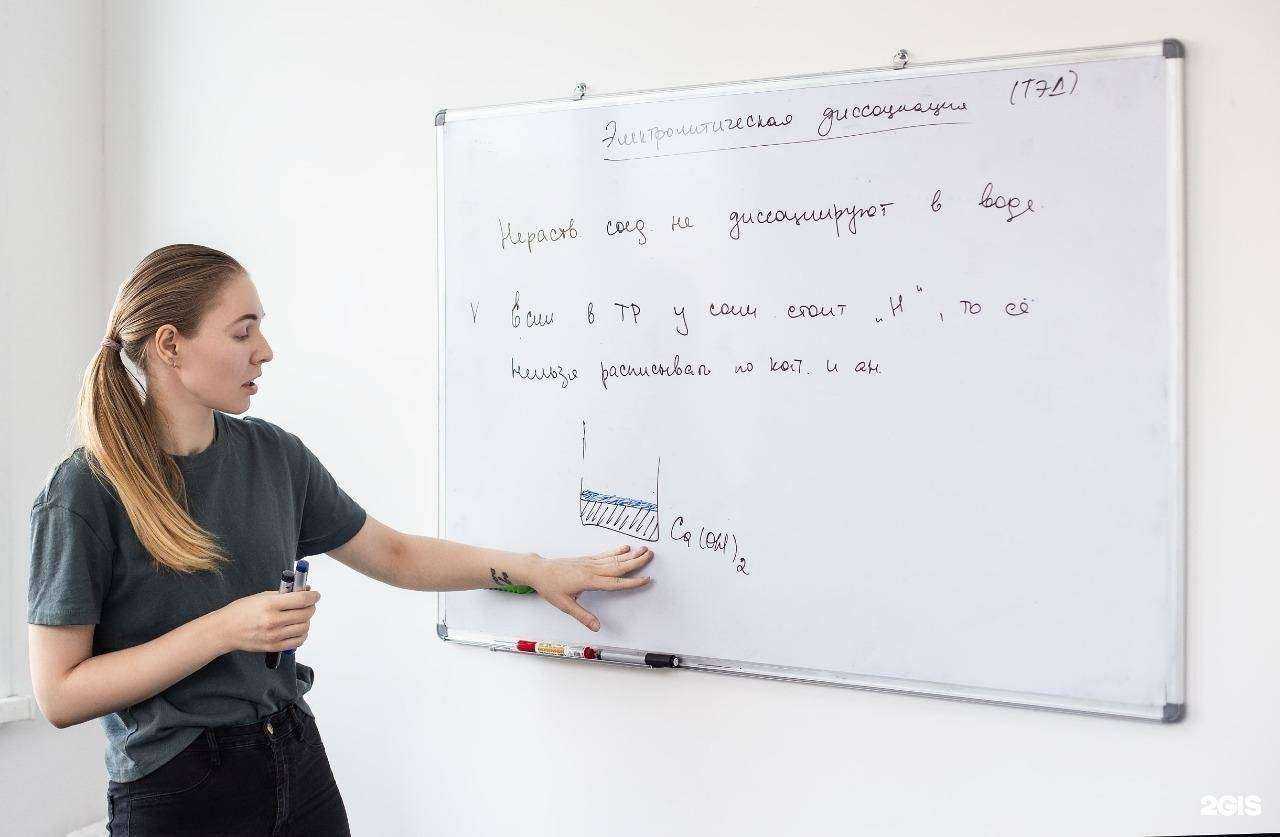 Электролитическая диссоциация (ТЭД)
Нераств. соед. не диссоциируют в воде.
V Если в ТР у соли стоит „Н", то её
нельзя расписывать по кат. и ан.
Ca(OH)2
2GIS